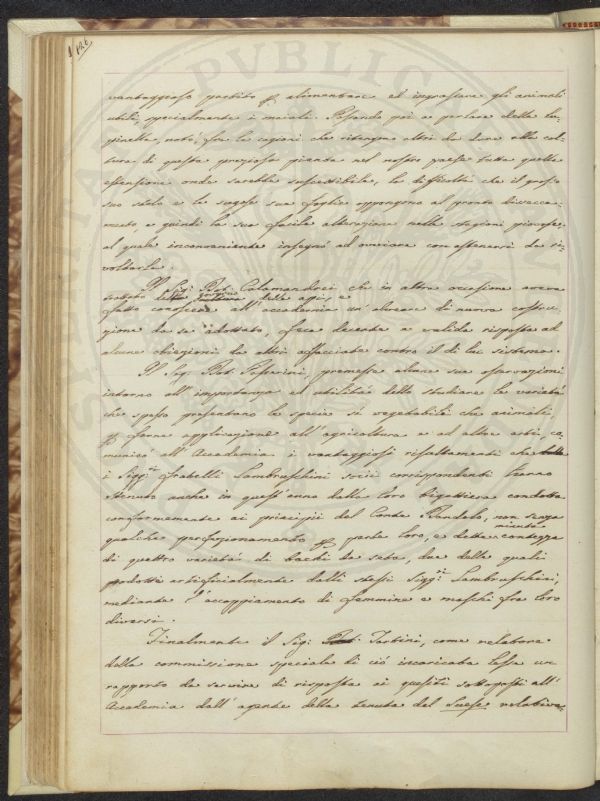 126.
vantaggioso partito p. alimentare ed ingrassare gli animali
utili, specialmente i maiali. Passando poi a parlare della lu-
pinella, notò fra le cagioni che ritengono altri da dare alla cul-
tura di questa preziosa pianta nel nostro paese tutta quella
estensione onde sarebbe suscettibile, la difficoltà che il grosso
suo stelo e le sugose sue foglie oppongono al pronto diseccca-
mento e quindi la sua facile alterazione nelle stagioni piovose,
al quale inconveniente insegnò ad ovviare con astenersi da ri-
voltarla.
Il Sig. Dot. Calamandrei che in altra occasione aveva
trattato della governo delle api, e
fatto conoscere all'accademia un alveare di nuova costru-
zione da se adottato, fece decente e valida risposta ad
alcune obiezioni da altri affacciate contro il di lui sistema.
Il Sig. Dot. Passerini, premesse alcune sue osservazioni
intorno all'importanza ed utilità dello studiare le varietà
che spesso presentano le specie sì vegetabili che animali
p. farne applicazione all'agricoltura e ad altre arti, co-
municò all'Accademia i vantaggiosi resultamenti che
i Sigg.ri fratelli Lambruschini socii corrispondenti hanno
ottenuto anche in quest'anno dalla loro bigattiera condotta
conformemente ai principii del Conte Dandolo, non senza
qualche perfezionamento p. parte loro, e dette minuta contezza
di quattro varietà di bachi da seta, due delle quali
prodotte artificialmente dalli stessi Sigg.ri Lambruschini,
mediante l'accoppiamento di femmine e maschi fra loro
diversi.
Finalmente il Sig. Tartini, come relatore
della commissione speciale di ciò incaricata lesse un
rapporto da servire di risposta ai quesiti sottoposti all'
Accademia dall'agente della tenuta del Suese relativa-